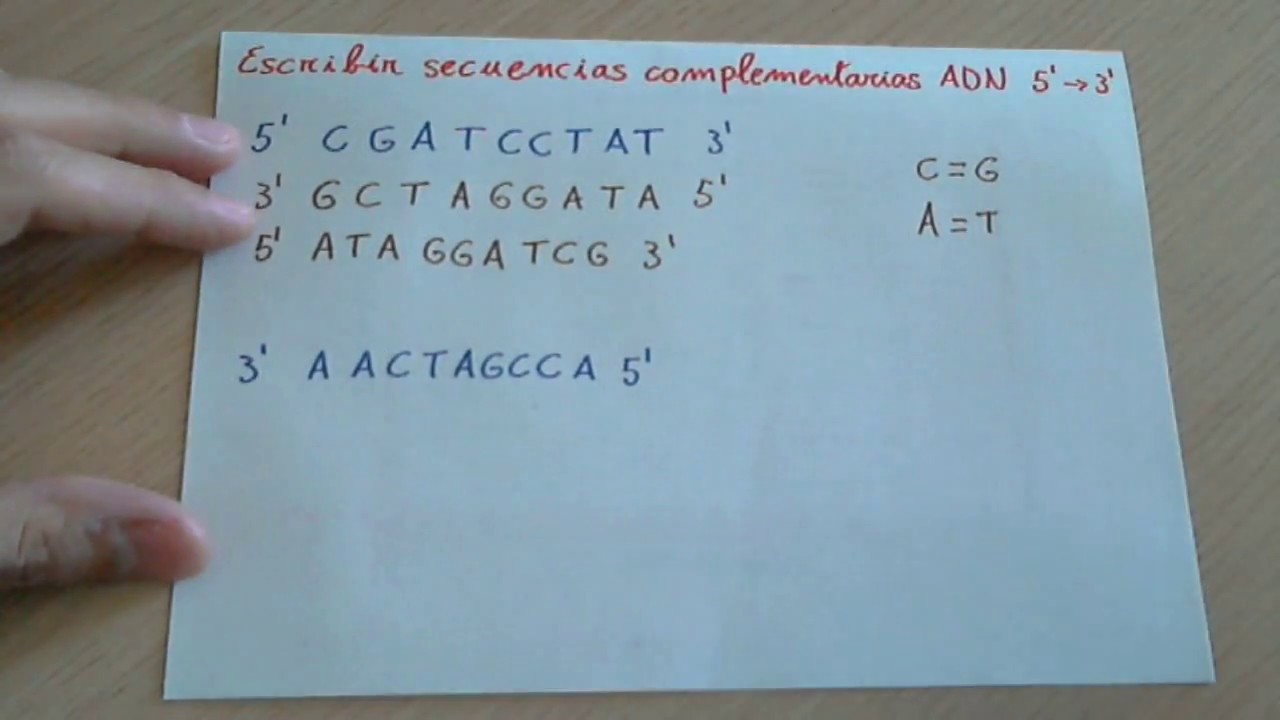 Escribir secuencias complementarias ADN 5' → 3'
5' C G A T C C T A T 3'
3' G C T A G G A T A 5'
5' A T A G G A T C G 3'
C = G
A = T
3' A A C T A G C C A 5'